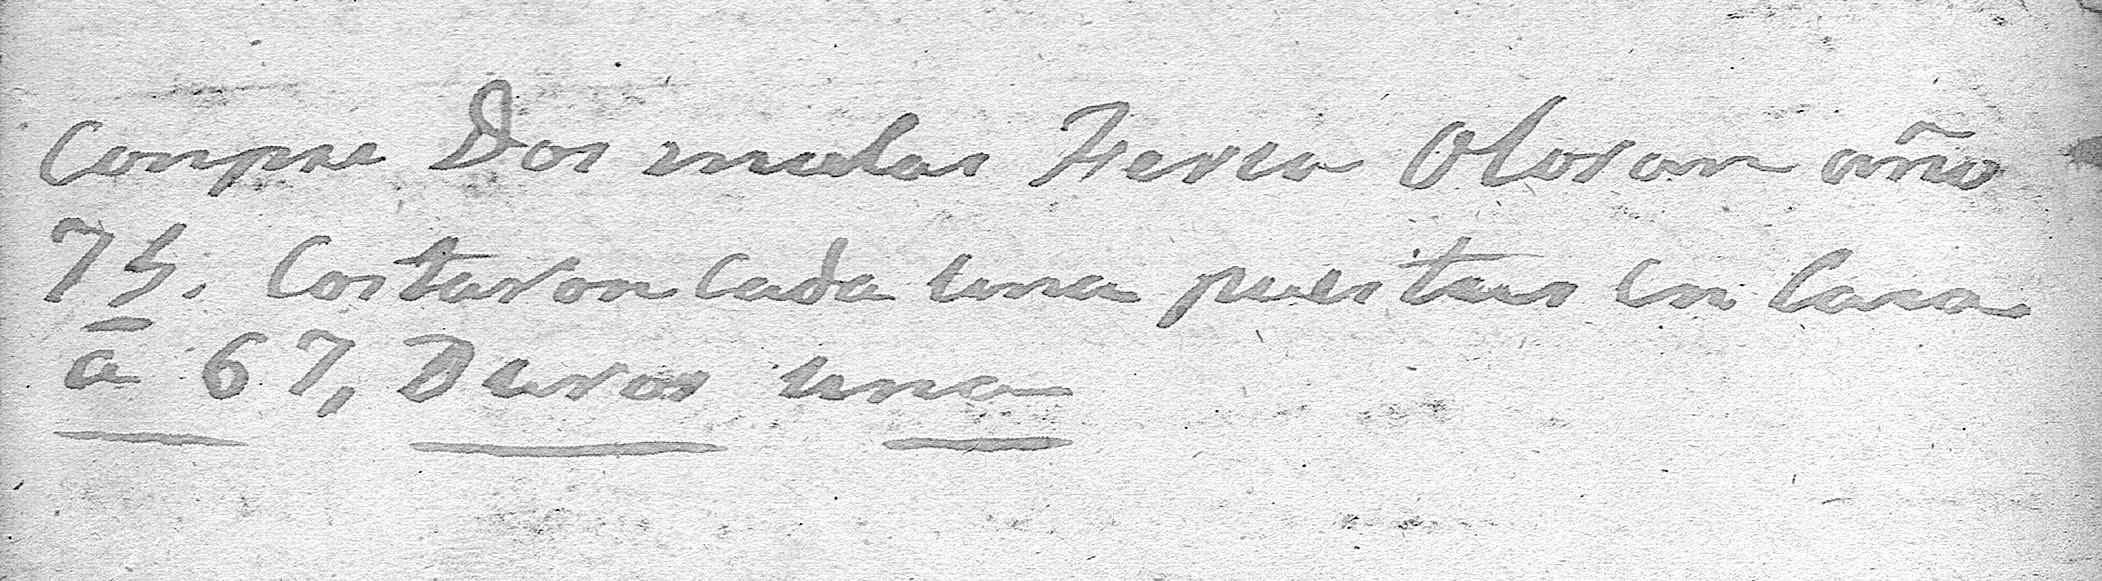 Conpre Dos mulas Feria Oloron año
75. Costaron Cada una puestas en Casa
a 67, Duros una